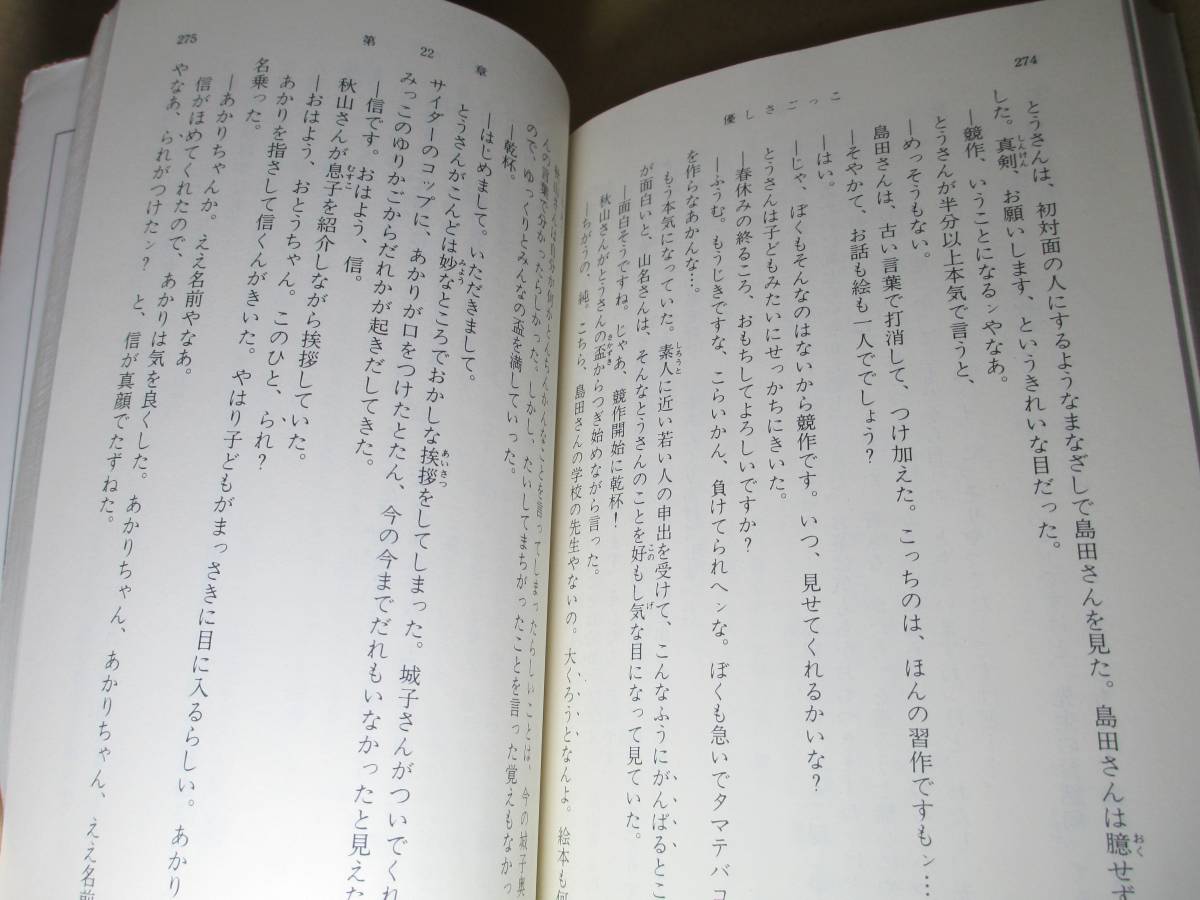 274
優しさごっこ
とうさんは、初対面の人にするようなまなざしで島田さんを見た。島田さんは臆せず
した。真剣、お願いします、というきれいな目だった。
―競作、いうことになるンやなあ。
とうさんが半分以上本気で言うと、
―めっそうもない。
島田さんは、古い言葉で打消して、つけ加えた。こっちのは、ほんの習作ですもン…
―そやかて、お話も絵も一人ででしょう?
―はい。
―じゃ、ぼくもそんなのはないから競作です。いつ、見せてくれるかいな?
とうさんは子どもみたいにせっかちにきいた。
―春休みの終るころ、おもちしてよろしいですか?
―ふうむ。もうじきですな、こらいかん、負けてられへンな。ぼくも急いでタマテバコ
を作らなあかんな…。
もう本気になっていた。素人に近い若い人の申出を受けて、こんなふうにがんばるとこ
が面白いと、山名さんは、そんなとうさんのことを好もし気な目になって見ていた。
―面白そうですね。じゃあ、競作開始に乾杯!
秋山さんがとうさんの盃からつぎ始めながら言った。
―ちがうの、純。こちら、島田さんの学校の先生やないの。大くろうとなんよ。絵本も何
275
第22章
んの言葉で分かったらしかった。しかし、たいしてまちがったことを言った覚えもなかっ
ので、ゆっくりとみんなの盃を満していった。
―乾杯。
―はじめまして。いただきまして。
とうさんがこんどは妙なところでおかしな挨拶をしてしまった。城子さんがついでくれ
サイダーのコップに、あかりが口をつけたとたん、今の今までだれもいなかったと見えた
みっこのゆりかごからだれかが起きだしてきた。
―信です。おはよう、信。
秋山さんが息子を紹介しながら挨拶していた。
―おはよう、おとうちゃん。このひと、られ?
あかりを指さして信くんがきいた。やはり子どもがまっさきに目に入るらしい。あかり
名乗った。
―あかりちゃんか。ええ名前やなあ。
信がほめてくれたので、あかりは気を良くした。あかりちゃん、あかりちゃん、ええ名前
やなあ、られがつけたン? と、信が真顔でたずねた。